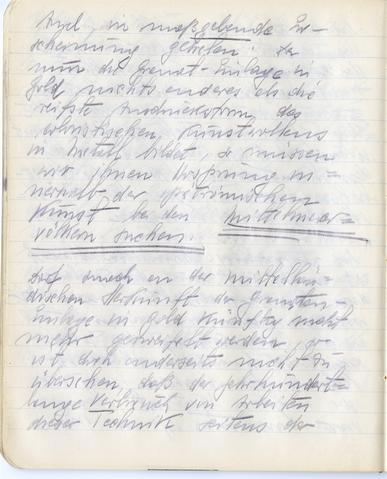 Azil, in maßgebende Er-
scheinung getreten. da
nun die Granat-Einlage in
Gold, nichts anderes als die
reifste Ausdrucksform des
koloristischen Kunstwollens
in Metall bildet, so müssen
wir ihren Ursprung in-
nerhalb der spätrömischen
Kunst bei den Mittelmeer-
völkern suchen.
Darf auch an der mittellän-
dischen Herkunft der Granaten-
einlage in Gold künftig nicht
mehr gezweifelt werden, so
ist doch anderseits nicht zu
übersehen, daß der jahrhundert-
lange Verbrauch von Arbeiten
dieser Technik seitens der